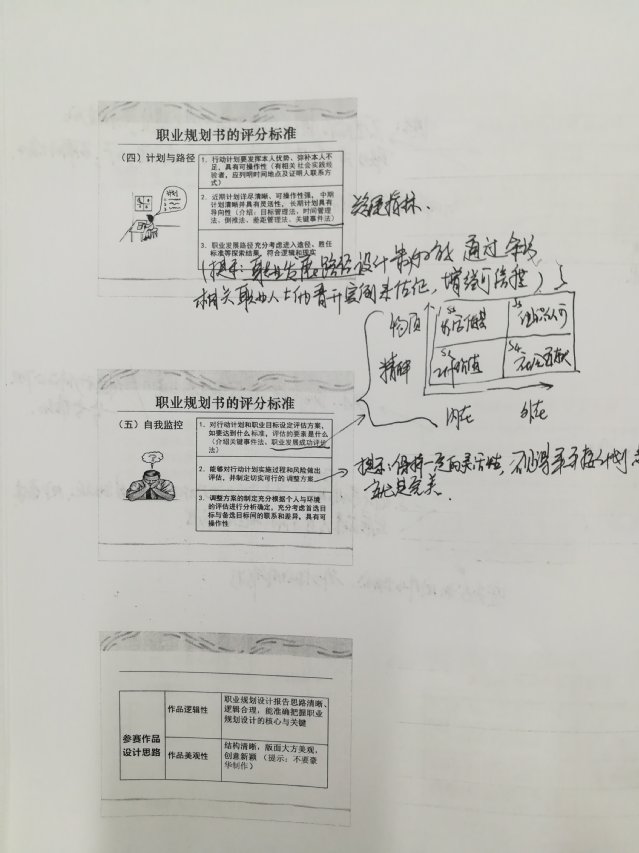 职业规划书的评分标准
（四）计划与路径
计划
1. 行动计划要发挥本人优势、弥补本人不
足，具有可操作性（有相关社会实践经
验者，应列明时间地点及证明人联系方
式）
2. 近期计划详尽清晰、可操作性强，中期
计划清晰并具有灵活性，长期计划具有
导向性（介绍：目标管理法，时间管理
法、倒推法、差距管理法、关键事件法）
3. 职业发展路径充分考虑进入途径、胜任
标准等探索结果，符合逻辑和现实
（提示：职业发展路径设计最好能 通过
相关职业人士的
物质
精神
内在
外在
职业规划书的评分标准
（五）自我监控
1. 对行动计划和职业目标设定评估方案，
如要达到什么标准，评估的要素是什么
（介绍关键事件法、职业发展成功评估
法）
2. 能够对行动计划实施过程和风险做出
评估，并制定切实可行的 调整方案
3. 调整方案的制定充分根据个人与环境
的评估进行分析确定，充分考虑首选目
标与备选目标间的联系和差异，具有可
操作性
提示：保持一定的灵活性，不
就是完美.
参赛作品
设计思路
作品逻辑性
职业规划设计报告思路清晰、
逻辑合理，能准确把握职业
规划设计的核心与关键
作品美观性
结构清晰，版面大方美观，
创意新颖 （提示：不要豪
华制作）